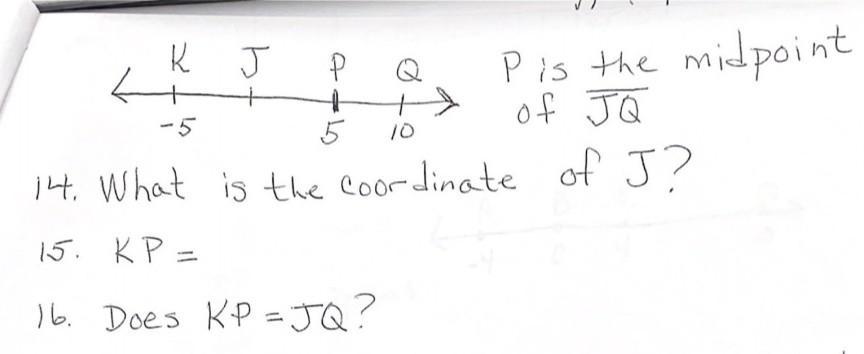 K J P Q
-5 5 10
P is the midpoint
of JQ
14. What is the coordinate of J?
15. KP =
16. Does KP = JQ?